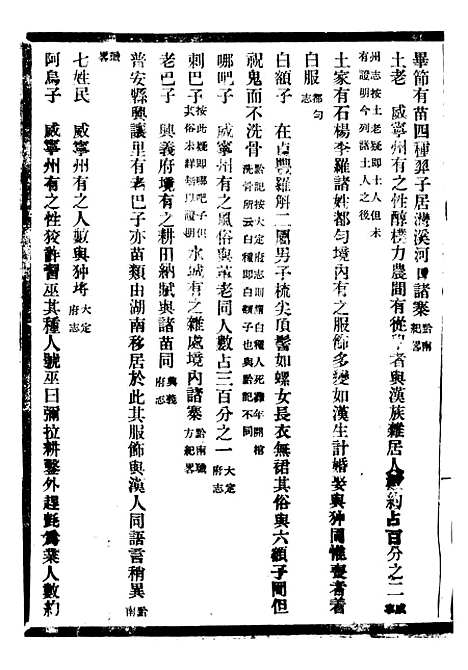 畢節有苗四種猓子居灣溪河口諸寨黔南紀畧
土老　威寧州有之性醇樸力農間有從學者與漢族雜居人數約占百分之二威寧
州志按土老疑即土人但未有證明今列諸土人之後
土家有石楊李羅諸姓都勻境內有之服飾多變如漢生計婚娶與狆同惟喪者着
白服都勻志
白額子　在貞豐羅斛二屬男子梳尖頂髻如螺女長衣無裙其俗與六額子同但
祝鬼而不洗骨黔記按大定府志則謂白種人死踰年開棺洗骨所云白種即白額子也與黔記不同
哪吧子　威寧州有之風俗與苗老同人數占三百分之一大定府志
剌巴子按此疑即哪吧子但其俗未詳無以證明水城有之雜處境內諸寨黔南職方紀畧
老巴子　興義府境有之耕田納賦與諸苗同興義府志
普安縣興讓里有老巴子亦苗類由湖南移居於此其服飾與漢人同語言稍異黔南
職畧
七姓民　威寧州有之人數與狆埒大定府志
阿烏子　威寧州有之性狡詐習巫其種人號巫曰彌拉耕鑿外趕氈為業人數約